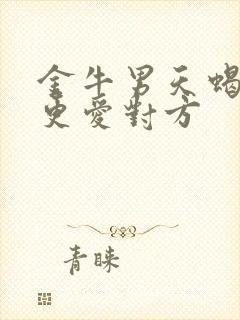 金牛男天蝎
更愛對方
青睞